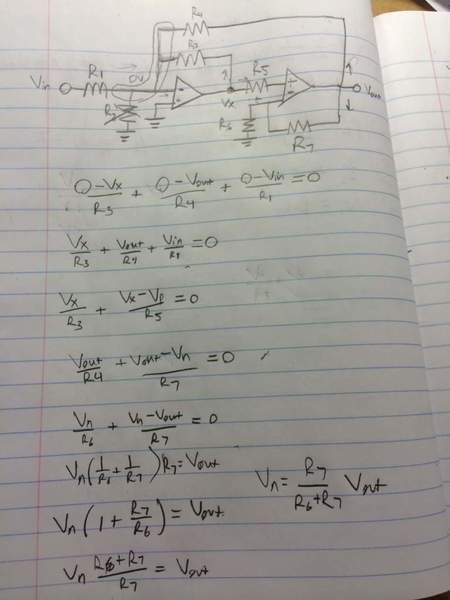 R4
R3
R1 0V R5
Vin Vx Vout
R2 R6 R7
0-Vx/R3 + 0-Vout/R4 + 0-Vin/R1 = 0
Vx/R3 + Vout/R4 + Vin/R1 = 0
Vx/R3 + Vx-Vp/R5 = 0
Vout/R4 + Vout-Vn/R7 = 0
Vn/R6 + Vn-Vout/R7 = 0
Vn(1/R6 + 1/R7)R7 = Vout
Vn = R7/R6+R7 Vout
Vn(1 + R7/R6) = Vout
Vn R6+R7/R7 = Vout